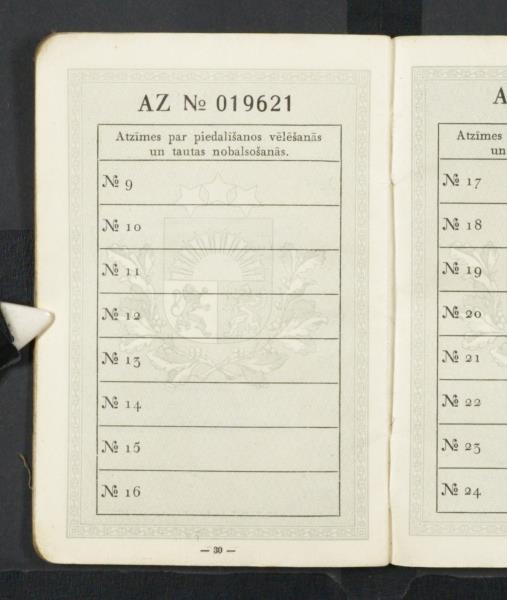 AZ № 019621
Atzīmes par piedalīšanos vēlēšanās
un tautas nobalsošanās.
№ 9
№ 10
№ 11
№ 12
№ 13
№ 14
№ 15
№ 16
— 30 —
A
Atzīmes
un
№ 17
№ 18
№ 19
№ 20
№ 21
№ 22
№ 23
№ 24